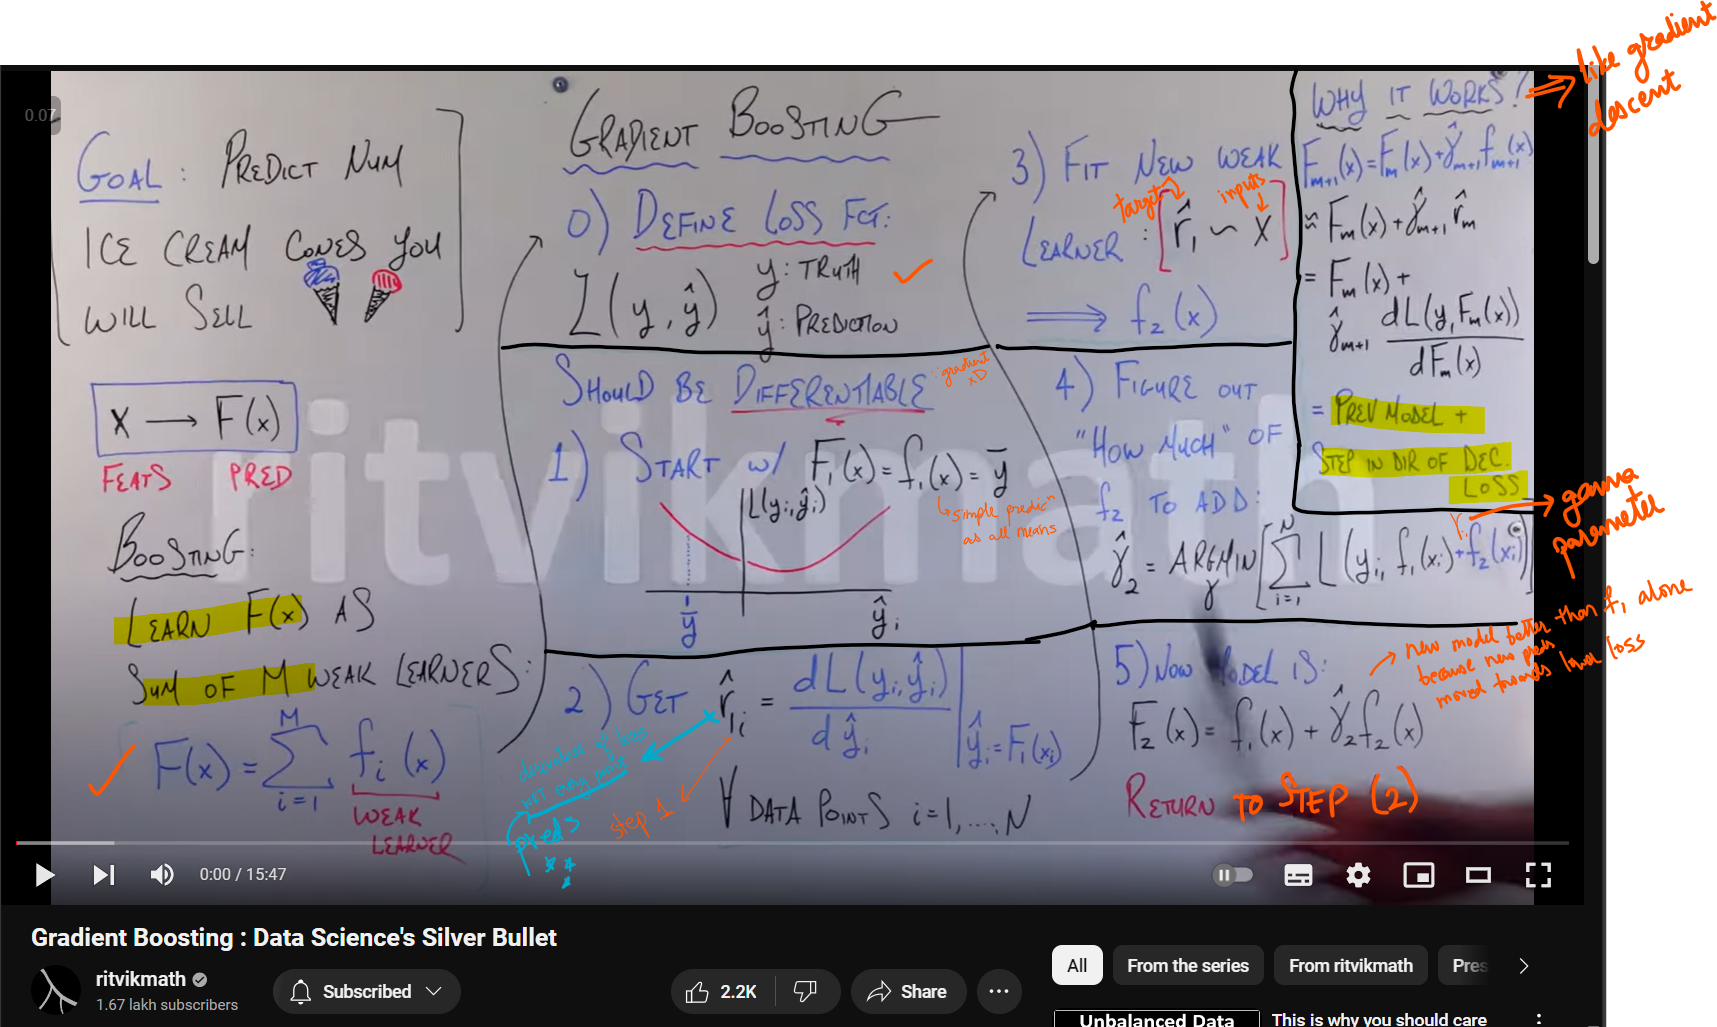 0:07
GOAL: PREDICT NUM
ICE CREAM CONES YOU
WILL SELL
X → F(x)
FEATS PRED
BOOSTING:
LEARN F(x) AS
SUM OF M WEAK LEARNERS:
F(x) = Σ_{i=1}^{M} f_i(x)
WEAK
LEARNER
GRADIENT BOOSTING
0) DEFINE LOSS FCT:
L(y, ŷ) y: TRUTH
ŷ: PREDICTION
SHOULD BE DIFFERENTIABLE
∵ gradient
xD
1) START w/ F₁(x) = f₁(x) = ȳ
L(yᵢ, ŷᵢ)
↳ simple predicⁿ
as all means
ȳ ŷᵢ
2) GET r̂₁ᵢ = dL(yᵢ, ŷᵢ) / dŷᵢ | ŷᵢ = F₁(xᵢ)
derivative of loss
wrt every point
preds
step 1
∀ DATA POINTS i=1,...,N
3) FIT NEW WEAK
target inputs
LEARNER: [r̂₁ ~ X]
⟹ f₂(x)
4) FIGURE OUT
"HOW MUCH" OF
f₂ TO ADD:
γ̂₂ = ARGMIN_γ [Σ_{i=1}^{N} L(yᵢ, f₁(xᵢ) + f₂(xᵢ))]
→ gamma
parameter
5) NOW MODEL IS:
F₂(x) = f₁(x) + γ̂₂f₂(x)
→ new model better than f₁ alone
because new preds
moved towards lower loss
RETURN TO STEP (2)
WHY IT WORKS?
⇒ like gradient
descent
F_{m+1}(x) = F_m(x) + γ̂_{m+1} f_{m+1}(x)
≈ F_m(x) + γ̂_{m+1} r̂_m
= F_m(x) +
γ̂_{m+1} dL(y, F_m(x)) / dF_m(x)
= PREV MODEL +
STEP IN DIR OF DEC.
LOSS
ritvikmath
0:00 / 15:47
Gradient Boosting : Data Science's Silver Bullet
ritvikmath
1.67 lakh subscribers
Subscribed
2.2K
Share
All
From the series
From ritvikmath
Pres
Unbalanced Data
This is why you should care